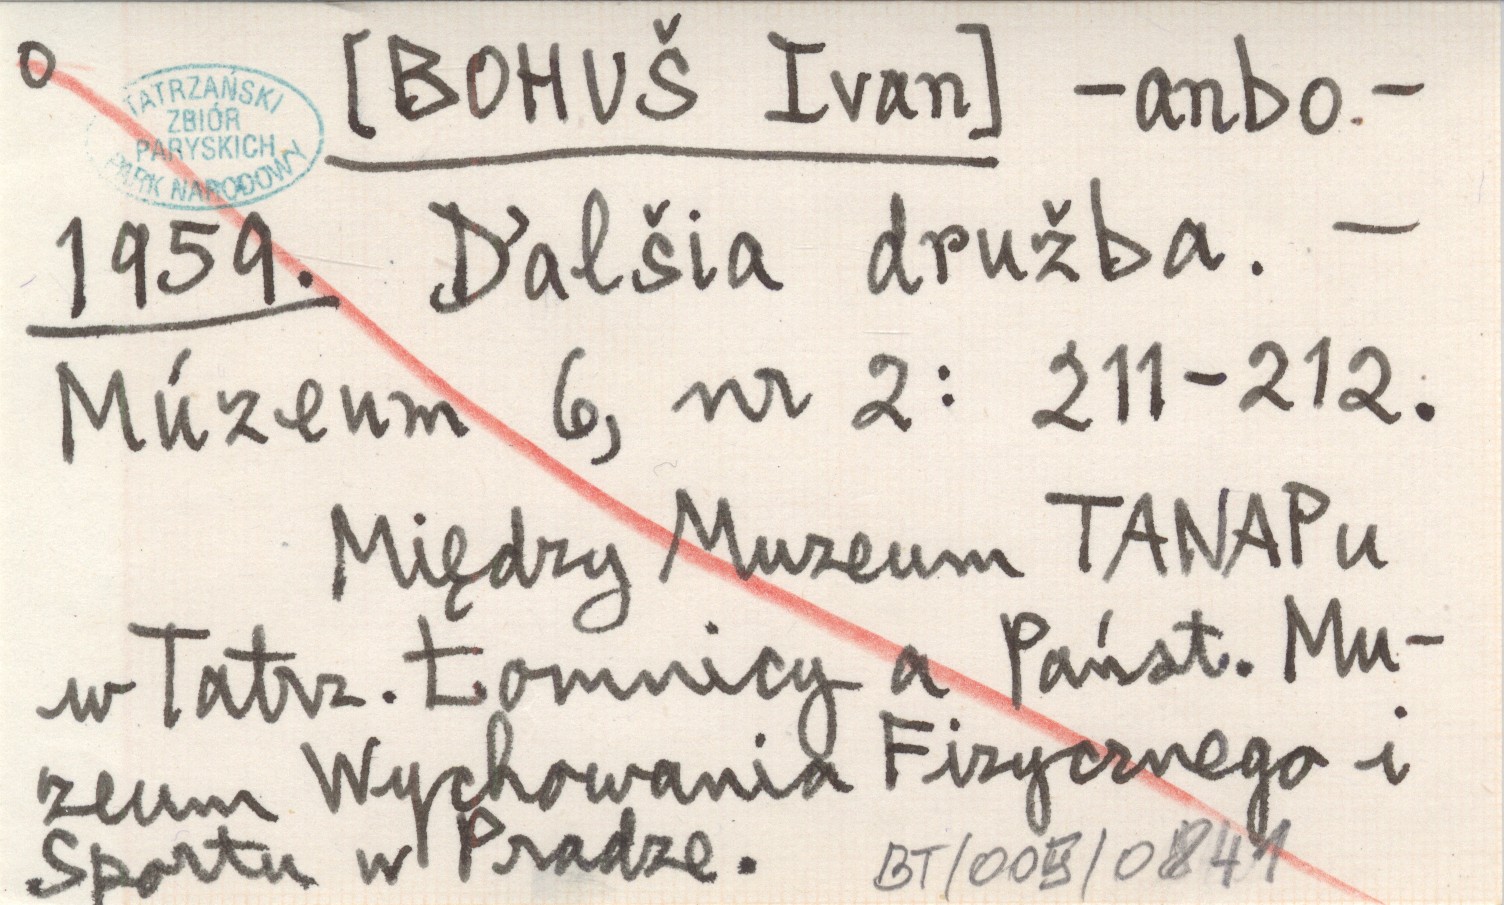 o
[BOHUŠ Ivan] -anbo.-
TATRZAŃSKI
ZBIÓR
PARYSKICH
PARK NARODOWY
1959. Ďalšia družba. -
Múzeum 6, nr 2: 211-212.
Między Muzeum TANAPu
w Tatrz. Łomnicy a Państ. Mu-
zeum Wychowania Fizycznego i
Sportu w Pradze.